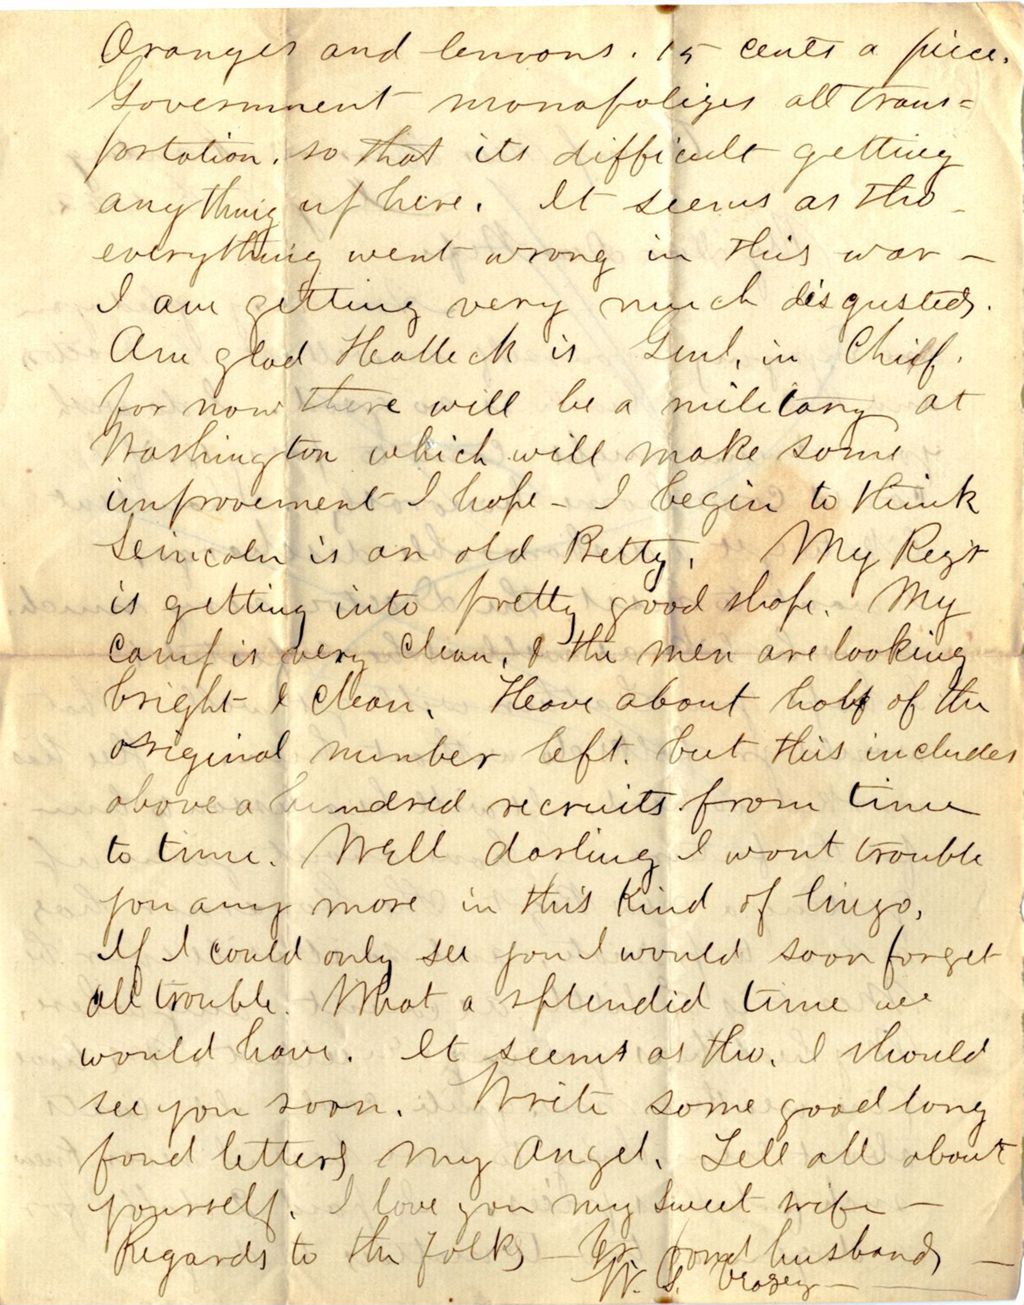 Oranges and lemons. 15 cents a piece.
Government monopolizes all trans=
portation. so that its difficult getting
anything up here. It seems as tho
everything went wrong in this war –
I am getting very much disgusted.
Am glad Halleck is Genl. in Chief.
for now there will be a military at
Washington which will make some
improvement I hope – I begin to think
Lincoln is an old Betty. My Regt
is getting into pretty good shape. My
camp is very clean, & the men are looking
bright & clean. Have about half of the
original number left. but this includes
above a hundred recruits from time
to time. Well darling I wont trouble
you any more in this kind of lingo.
If I could only see you I would soon forget
all trouble. What a splendid time we
would have. It seems as tho. I should
see you soon. Write some good long
fond letters my Angel. Tell all about
yourself. I love you my sweet wife –
Regards to the folks – Yr. fond husband –
W. S. Veazey –